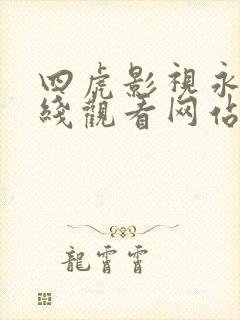 四虎影視永
綫觀看网佔
龍霄霄